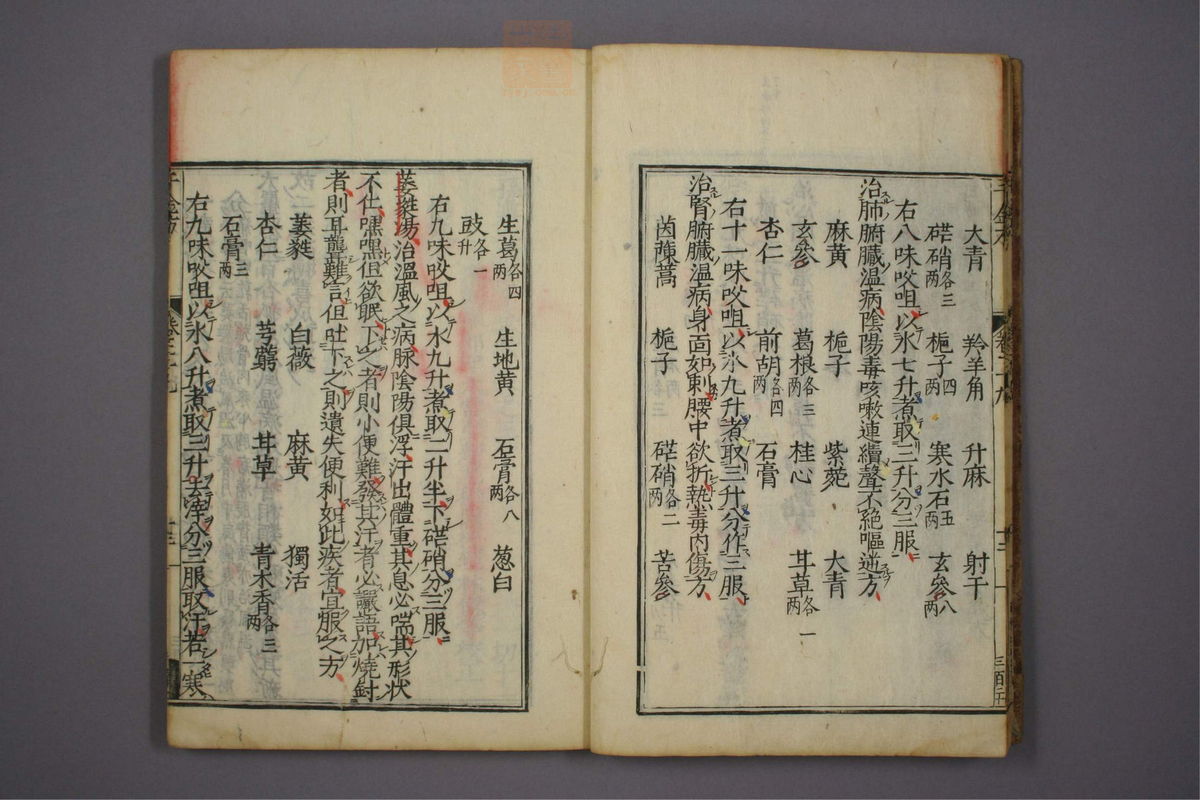 大青 羚羊角 升麻 射干
硭硝各三兩 梔子四兩 寒水石五兩 玄參八兩
右八味㕮咀以水七升煮取三升分三服
治肺腑臟溫病陰陽毒咳嗽連續聲不絕嘔逆方
麻黃 梔子 紫菀 大青
玄參 葛根各三兩 桂心 甘草各一兩
杏仁 前胡各四兩 石膏
右十一味㕮咀以水九升煮取三升分作三服
治腎腑臟溫病身面如刺腰中欲折熱毒內傷方
茵蔯蒿 梔子 硭硝各二兩 苦參
生葛各四兩 生地黃 石膏各八兩 葱白
豉各一升
右九味㕮咀以水九升煮取二升半下硭硝分三服
萎蕤湯治溫風之病脉陰陽俱浮汗出體重其息必喘其形狀
不仁嘿嘿但欲眠下之者則小便難發其汗者必讝語加燒針
者則耳聾難言但吐下之則遺失便利如此疾者宜服之方
萎蕤 白薇 麻黃 獨活
杏仁 芎藭 甘草 青木香各二兩
石膏三兩
右九味㕮咀以水八升煮取三升去滓分三服取汗若一寒